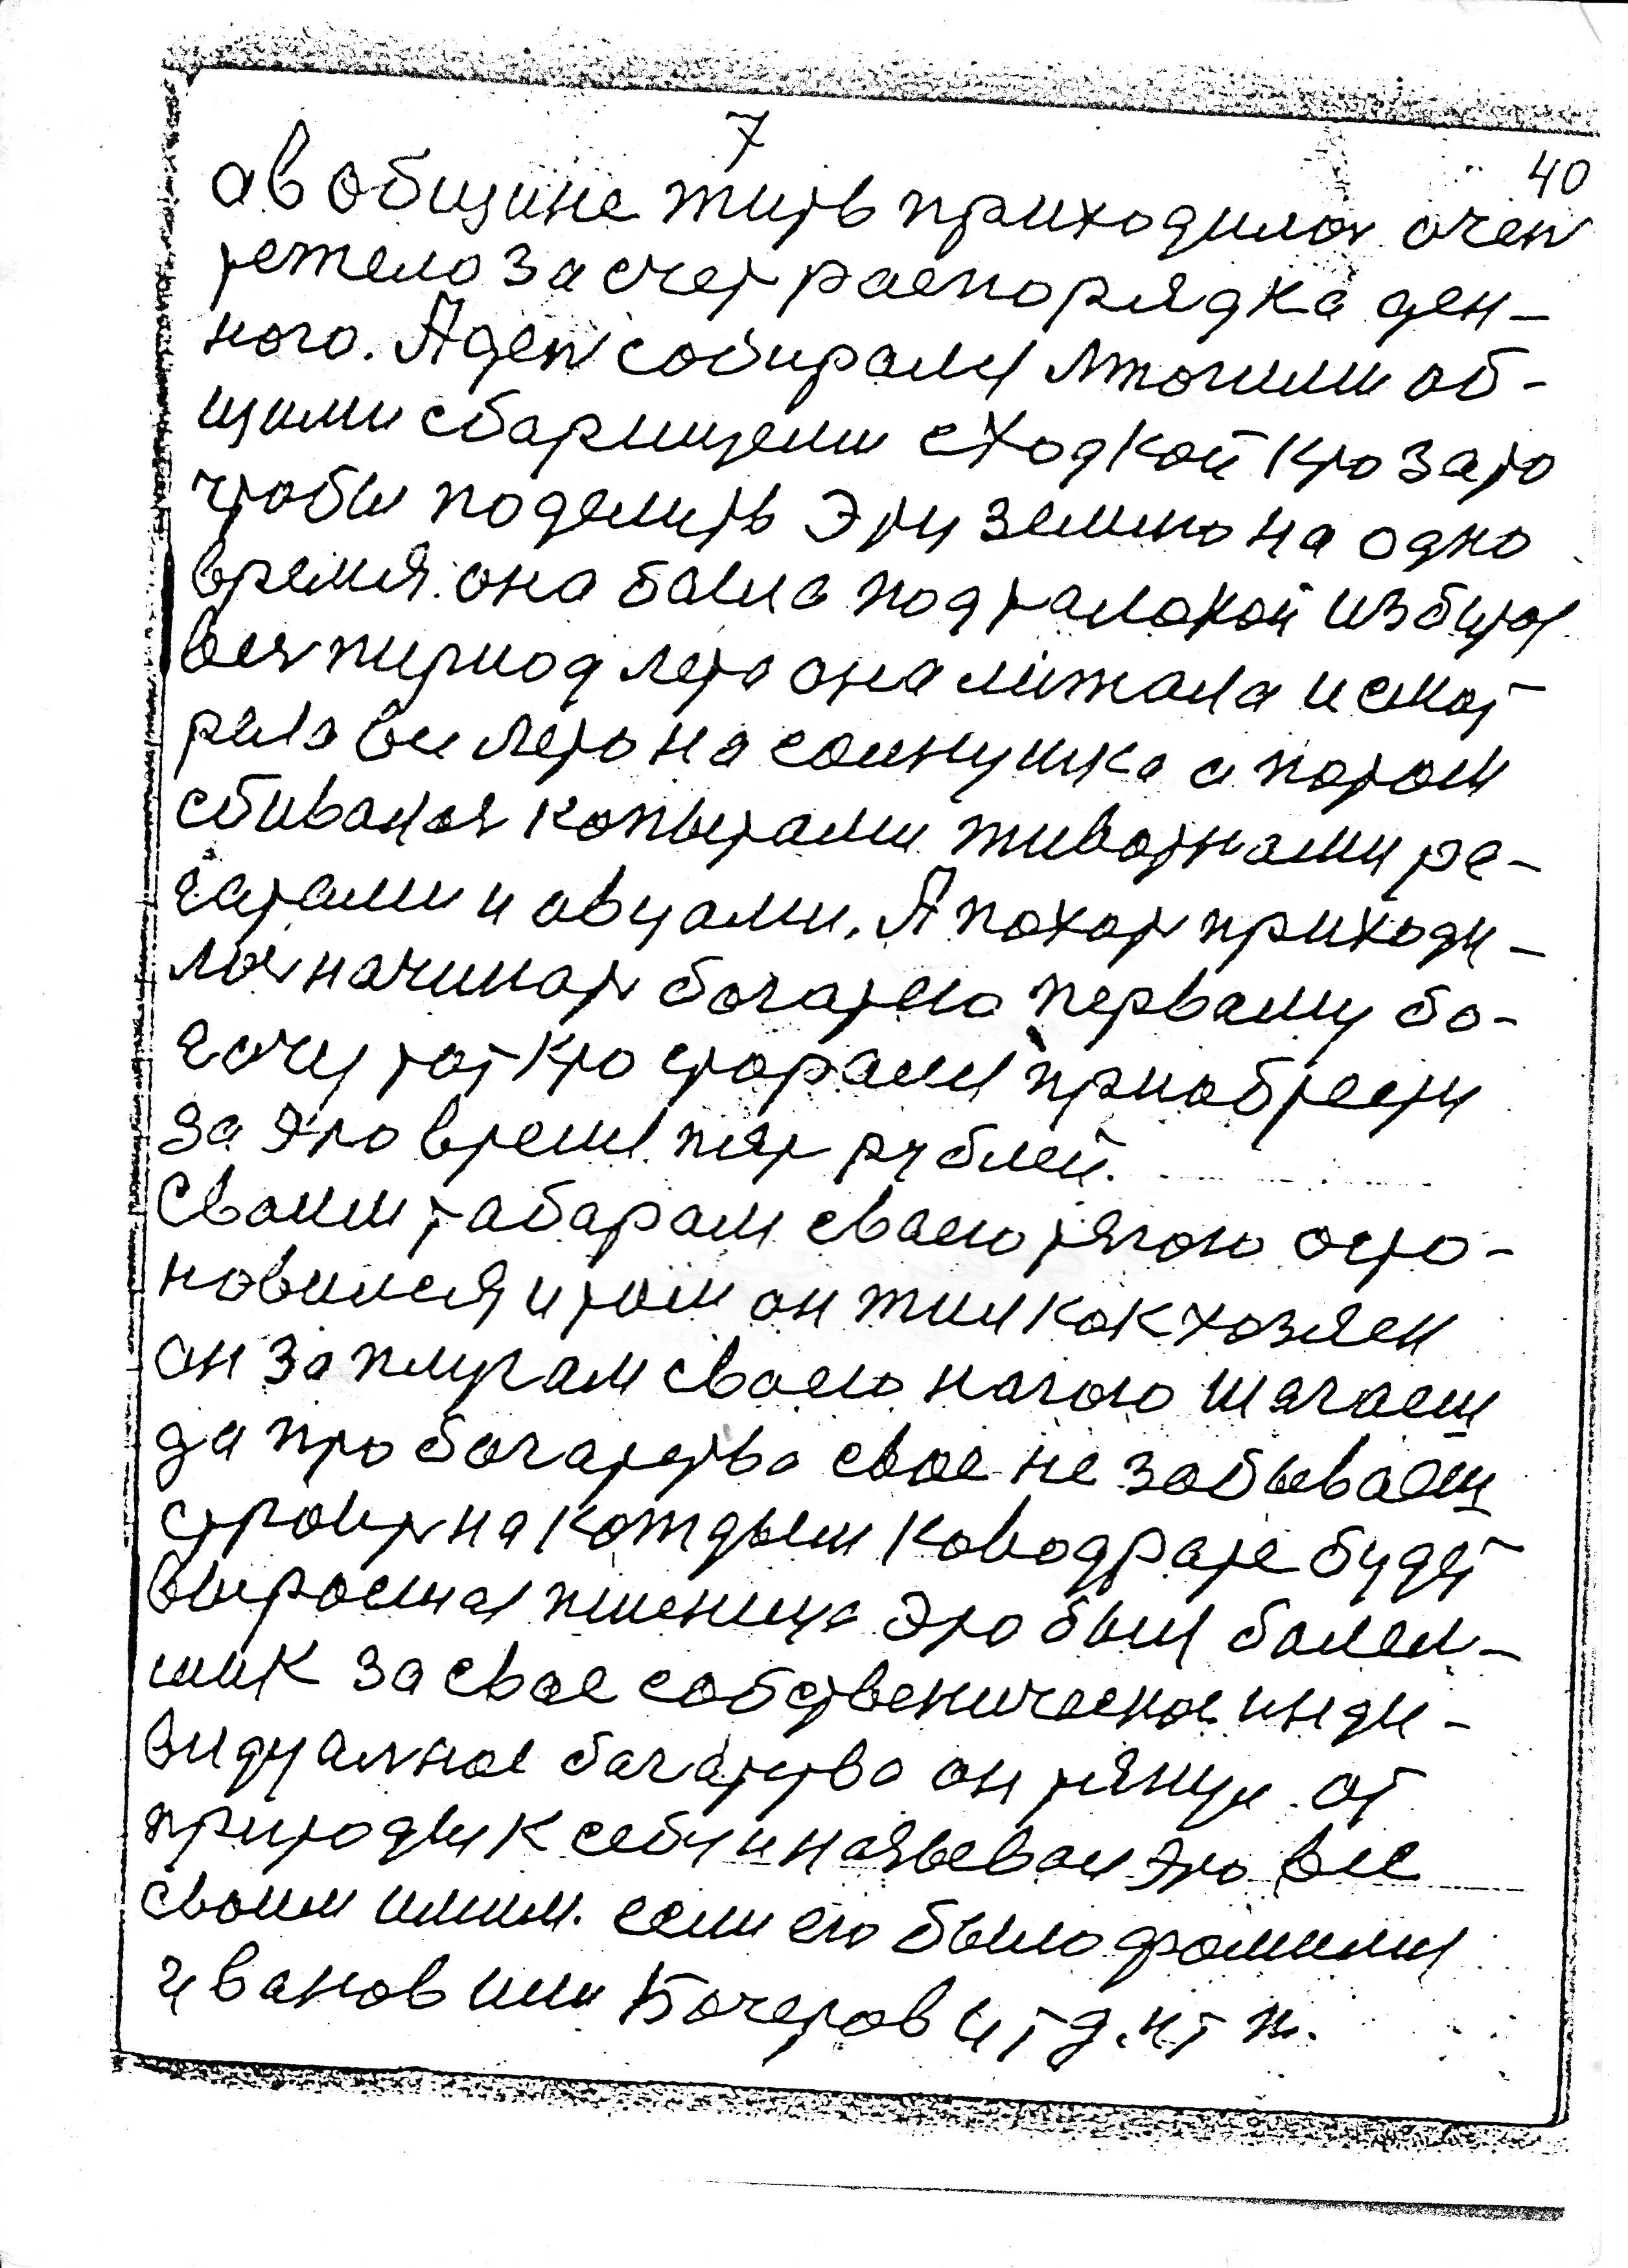 7
40
а в общине жить приходилос очен
тежело за счет распорядка ден-
ного. А ден собирали многими об-
щими сборищеми сходкой кто за то
чтобы поделить эту землю на одно
время. она была под талокой избитоя
вся пириод лета она лижала и смот
рела вси лето на солнушка а потом
сбивалоя копытами животнами ро-
гатами и овцами. А похат приходи-
лос начинат богатею первому бо-
гачу тот кто старалися приобрести
за это время пят рублей.
Своим табарам сваею тягою осто-
новился и там он жил как хозяен
он за плугам сваею нагою шягаеш
да про богатства свое не забываеш
строит на кождым ководрате будет
выросшая пшеница Это был болел-
шик за свае собственическое инди-
видуалное багатства он тянул от
природы к себу и назьевал это все
своим имим. если его было фамилия
Иванов или Бочеров и т д. и т п.